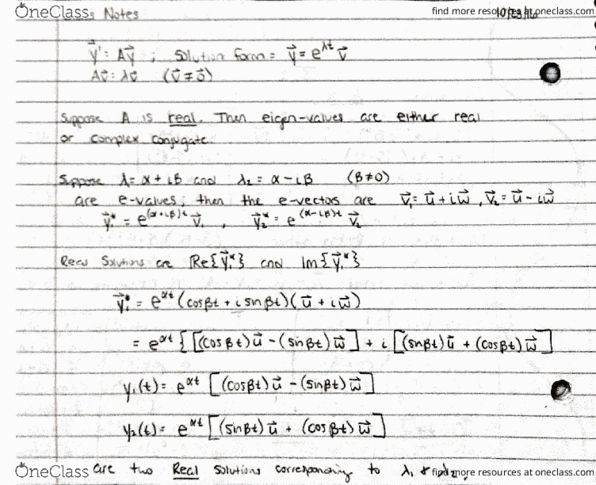 OneClass Notes find more resources at oneclass.com
y⃗' = Ay⃗ ; Solution form = y⃗ = e^{λt} v⃗
Av⃗ = λv⃗ (v⃗ ≠ 0⃗)
Suppose A is real. Then eigen-values are either real
or complex conjugate.
Suppose λ = α + iβ and λ₂ = α - iβ (β≠0)
are e-values; then the e-vectors are v⃗₁ = u⃗ + iw⃗, v⃗₂ = u⃗ - iw⃗
y⃗₁* = e^{(α+iβ)t} v⃗₁ , y⃗₂* = e^{(α-iβ)t} v⃗₂
Real Solutions are Re{y⃗₁*} and Im{y⃗₁*}
y⃗₁* = e^{αt} (cosβt + i sinβt)(u⃗ + iw⃗)
= e^{αt} {[(cosβt)u⃗ - (sinβt)w⃗] + i [(sinβt)u⃗ + (cosβt)w⃗]
y₁(t) = e^{αt} [(cosβt)u⃗ - (sinβt)w⃗]
y₂(t) = e^{αt} [(sinβt)u⃗ + (cosβt)w⃗]
OneClass are two Real Solutions corresponding to λ₁ find more resources at oneclass.com